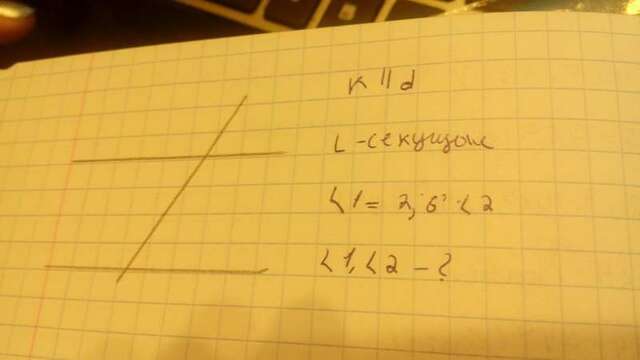 к || d
L - секущая
<1 = 2,6 · <2
<1, <2 - ?